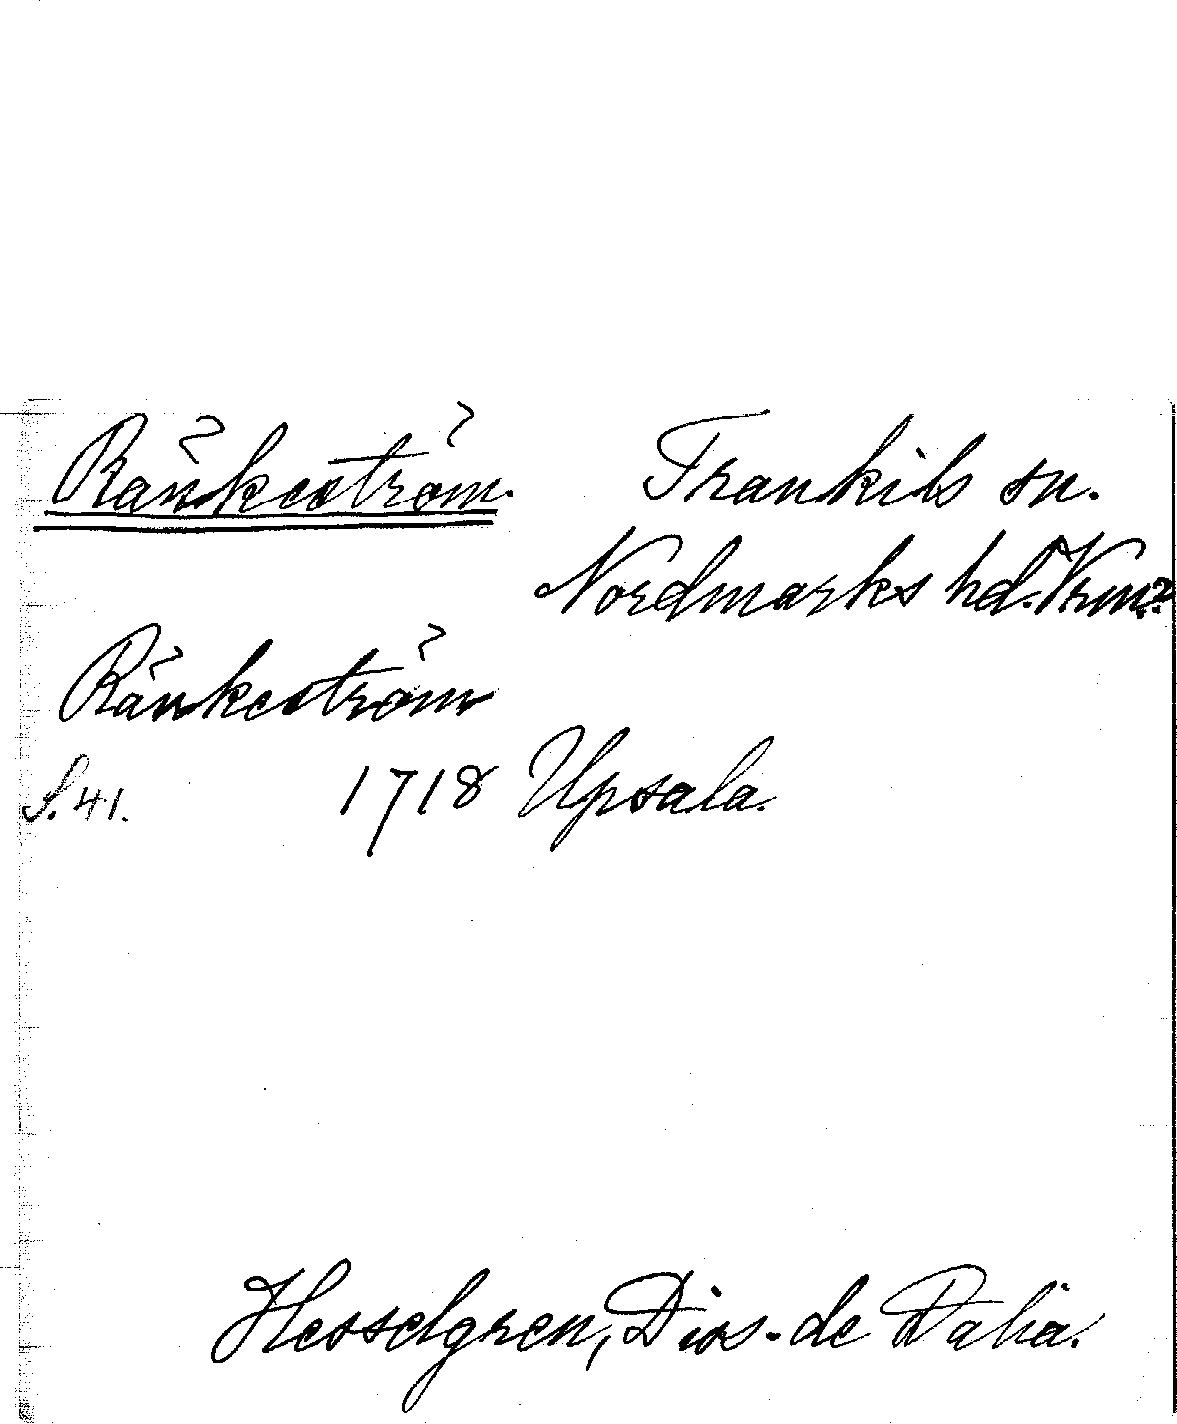 Ränkeström. Trankils sn.
Nordmarks hd. Vrml.
Ränkeström
S. 41. 1718 Upsala.
Hesselgren, Diss. de Dalia.